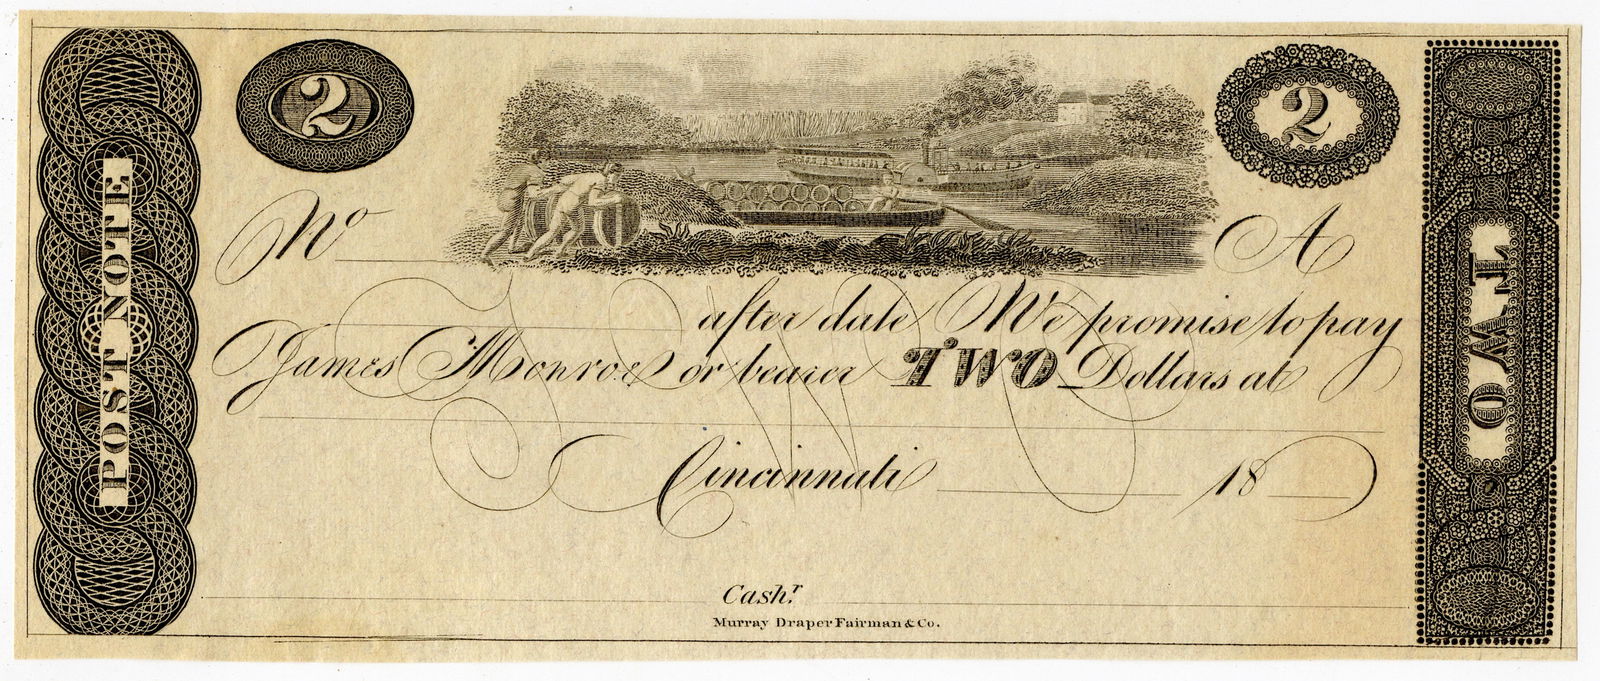 POST NOTE
2
2
No
A
after date We promise to pay
James Monroe or bearer TWO Dollars at
Cincinnati 18
Cashr.
Murray Draper Fairman & Co.
TWO